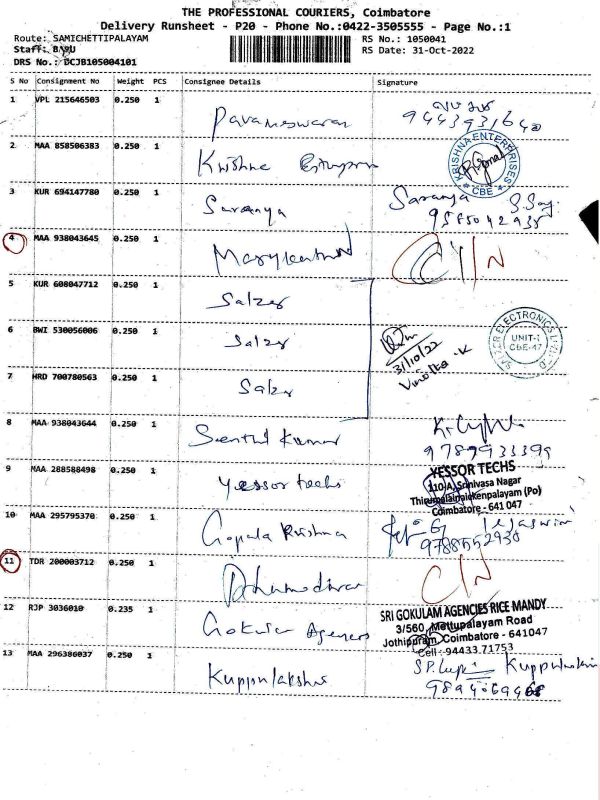 THE PROFESSIONAL COURIERS, Coimbatore
Delivery Runsheet - P20 - Phone No.:0422-3505555 - Page No.:1
Route: SAMICHETTIPALAYAM RS No.: 1050041
Staff: BABU RS Date: 31-Oct-2022
DRS No.: DCJB105004101
S No Consignment No Weight PCS Consignee Details Signature
1 VPL 215646503 0.250 1 Parameswaran
2 MAA 858506383 0.250 1 Krishna
KRISHNA ENTERPRISES CBE
3 KUR 694147780 0.250 1 Saranya Saranya
4 MAA 938043645 0.250 1
5 KUR 608047712 0.250 1 Salzer
6 BWI 530056006 0.250 1 Salzer
31/10/22
SALZER ELECTRONICS LTD
UNIT-1
CBE-47
7 HRD 700780563 0.250 1 Salzer
8 MAA 938043644 0.250 1 Senthil Kumar
9789933399
9 MAA 288588498 0.250 1 Yessor techs
YESSOR TECHS
110-A, Srinivasa Nagar
Coimbatore - 641 047
10 MAA 295795370 0.250 1 Gopala Krishna
9788552938
11 TDR 200003712 0.250 1
12 RJP 3036010 0.235 1 Gokulam Agencies
SRI GOKULAM AGENCIES RICE MANDY
3/560, Mettupalayam Road
Jothipuram, Coimbatore - 641047
Cell: 94433 71753
13 MAA 296386037 0.250 1 Kuppulakshmi